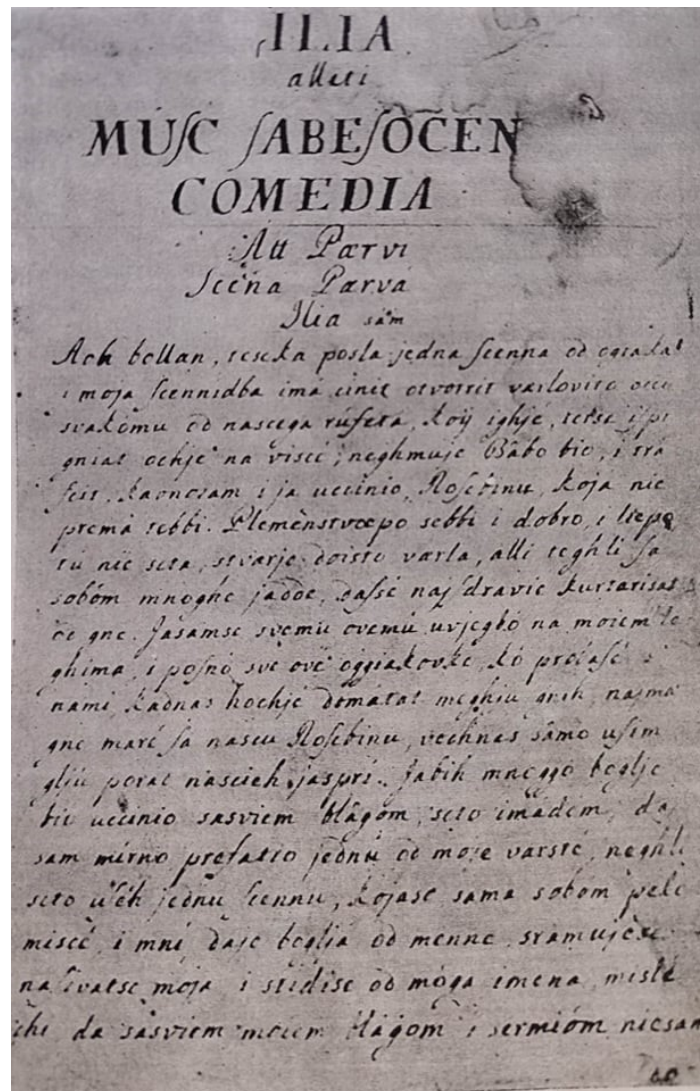 ILIA
alliti
MUſC ſABEſOCEN
COMEDIA
Att Parvi
Scena Parva
Ilia sam
Ach bollan, teseka posla jedna ſcenna od ogiakat
i moja ſcennidba imá cinit otvorrit varlovito occi
svakomu od nascega rúfeta, koij ighje, tetse
gniat ochje na visce; neghmuje Babo bio, i tra
kaonosam i ja uccinio, Roſebinu, koja nie
prema tebbi. Plemènstvoepo sebbi i dobro, i liepo
tú nie seta, stvarje doisto varla, alli teghli ſa
sobóm mnoghe jadde, daſse najſdravie kurtarisat
od gne. Jasamse svemu ovemu uvjegbó na moiem
ghima, i posnó sve ove oggiakovke, kó
nami, kadnas hochje domatat meghiu gnih, najma
gne marè ſa nascu Roſebinu, vechnas sâmo uſim
gliu porat nascieh jaspri. Jabih mnoggo boglje
bio uccinio sasviem blâgom, scto imâdem, da
sam mirno prefatio jednú od moje varstè, neghli
scto uſeh jednu ſcennu, kojase sama sobom
miscè, i mni daje boglia od menne, sramujese
naſivatse moja i stidise od môga imena, misle
chi da sasviem moiem blâgom i sermióm niesam